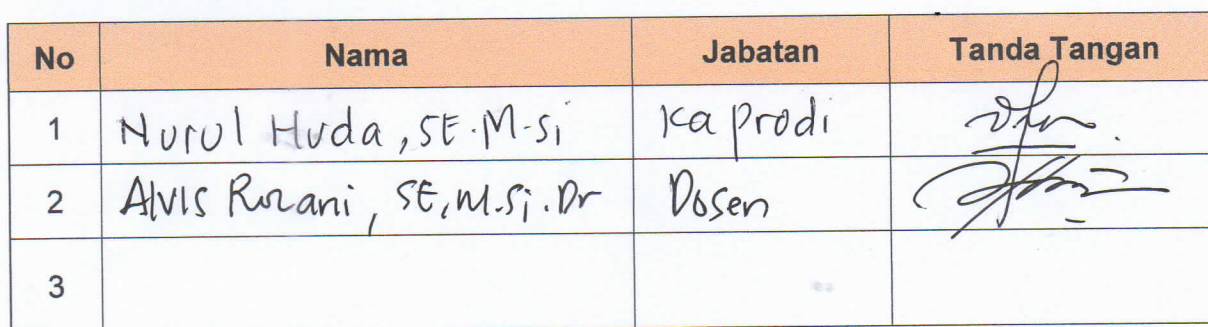 No Nama Jabatan Tanda Tangan
1 Nurul Huda, SE.M.Si Kaprodi
2 Alvis Rozani, SE, M.Si.Dr Dosen
3